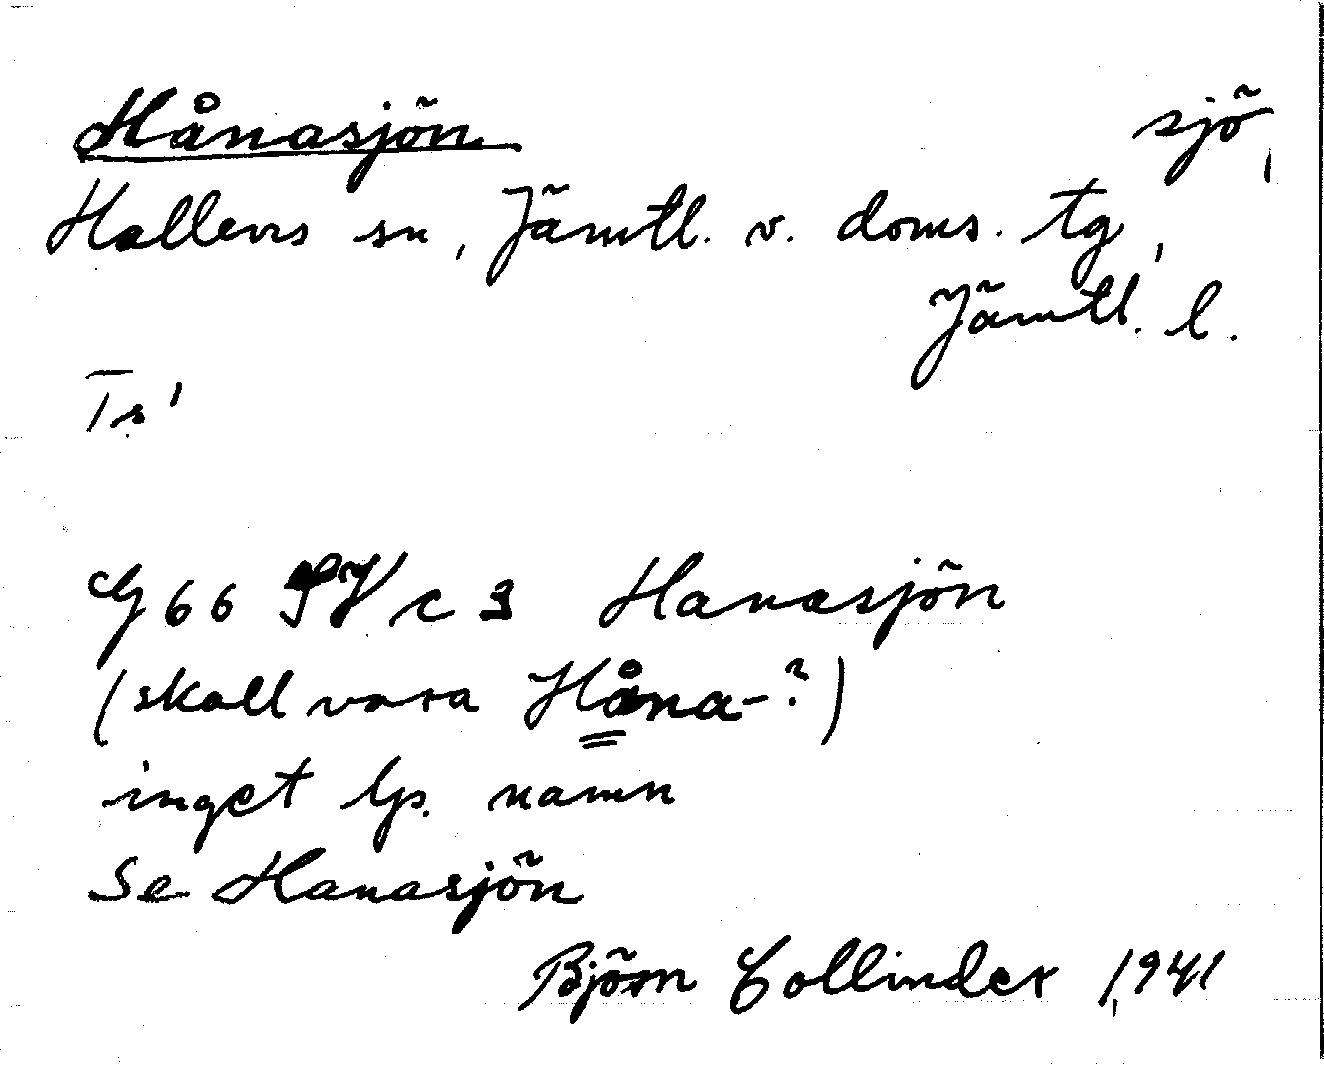 Hånasjön sjö,
Hallens sn, Jämtl. v. doms. tg,
Jämtl. l.
Ts'
G 66 SV c 3 Hanasjön
(skall vara Håna-?)
inget lp. namn
Se Hanasjön
Björn Collinder 1941